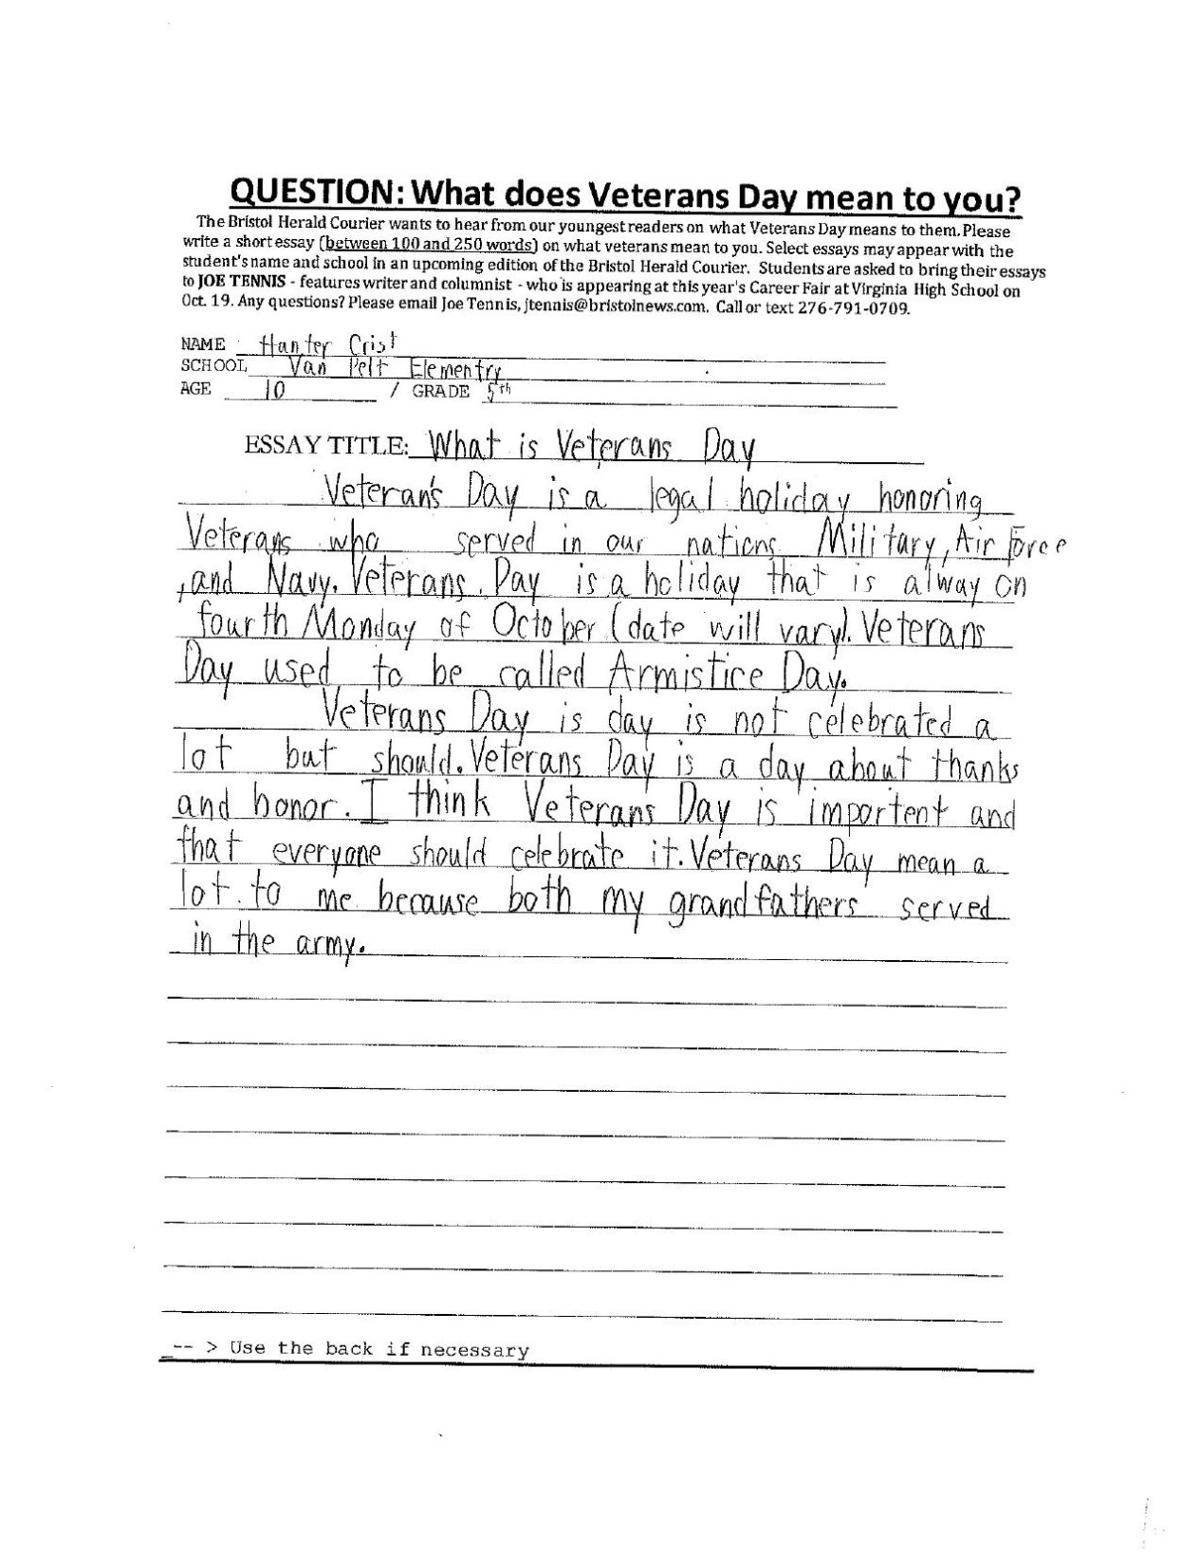 QUESTION: What does Veterans Day mean to you?
The Bristol Herald Courier wants to hear from our youngest readers on what Veterans Day means to them. Please
write a short essay (between 100 and 250 words) on what veterans mean to you. Select essays may appear with the
student's name and school in an upcoming edition of the Bristol Herald Courier. Students are asked to bring their essays
to JOE TENNIS - features writer and columnist - who is appearing at this year's Career Fair at Virginia High School on
Oct. 19. Any questions? Please email Joe Tennis, jtennis@bristolnews.com. Call or text 276-791-0709.
NAME Hunter Crist
SCHOOL Van Pelt Elementry
AGE 10 / GRADE 5th
ESSAY TITLE: What is Veterans Day
Veteran's Day is a legal holiday honoring
Veterans who served in our nations Military, Air Force
, and Navy. Veterans Day is a holiday that is alway on
fourth Monday of October (date will vary). Veterans
Day used to be called Armistice Day.
Veterans Day is day is not celebrated a
lot but should. Veterans Day is a day about thanks
and honor. I think Veterans Day is importent and
that everyone should celebrate it. Veterans Day mean a
lot to me because both my grandfathers served
in the army.
-- > Use the back if necessary